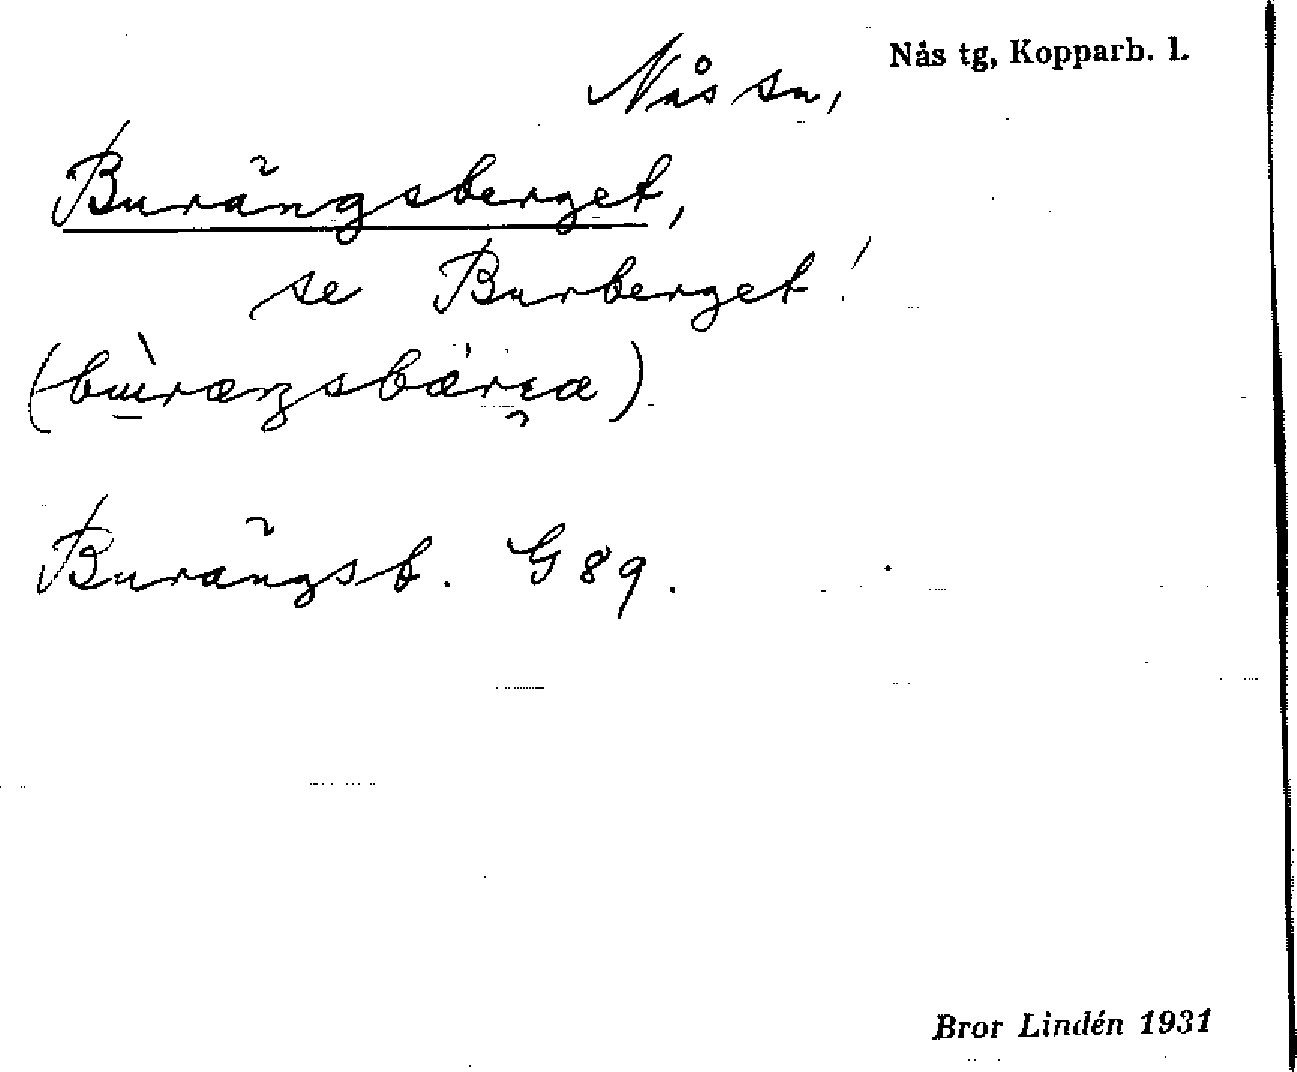 Nås tg, Kopparb. l.
Nås sn,
Burängsberget,
se Burberget!
Burängsb. G 89.
Bror Lindén 1931